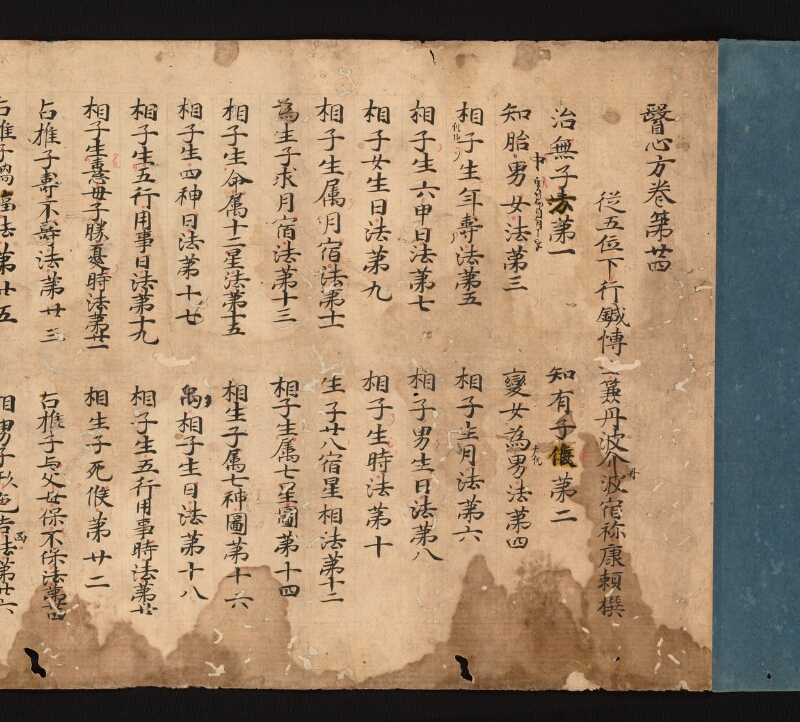 醫心方卷第廿四
從五位下行鍼博士兼丹波介宿祢康頼撰
治無子方第一 知有子候第二
知胎中男女法第三 變女為男法第四
相子生年壽法第五 相子生月法第六
相子生六甲日法第七 相子男生日法第八
相子女生日法第九 相子生時法第十
相子生属月宿法第十一 生子廿八宿星相法第十二
為生子求月宿法第十三 相子生属七星圖第十四
相子生命属十二星法第十五 相生子属七神圖第十六
相子生四神日法第十七 禹相子生日法第十八
相子生五行用事日法第十九 相子生五行用事時法第廿
相子生意母子勝憂時法第廿一 相生子死候第廿二
占推子壽不壽法第廿三 占推子与父母保不保法第廿四
占推子禍福法第廿五 相男子形色吉凶法第廿六